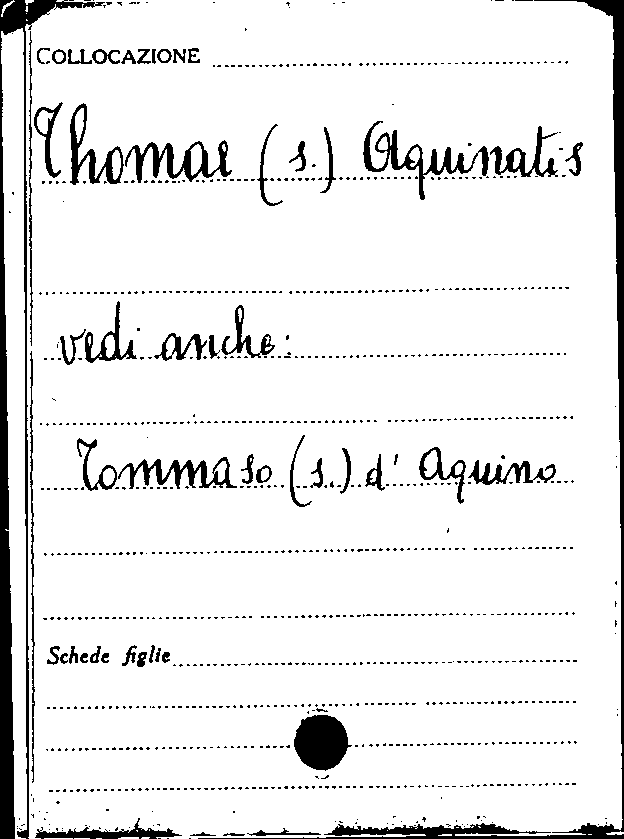 COLLOCAZIONE
Thomae (s.) Aquinatis
vedi anche:
Tommaso (s.) d' Aquino
Schede figlie